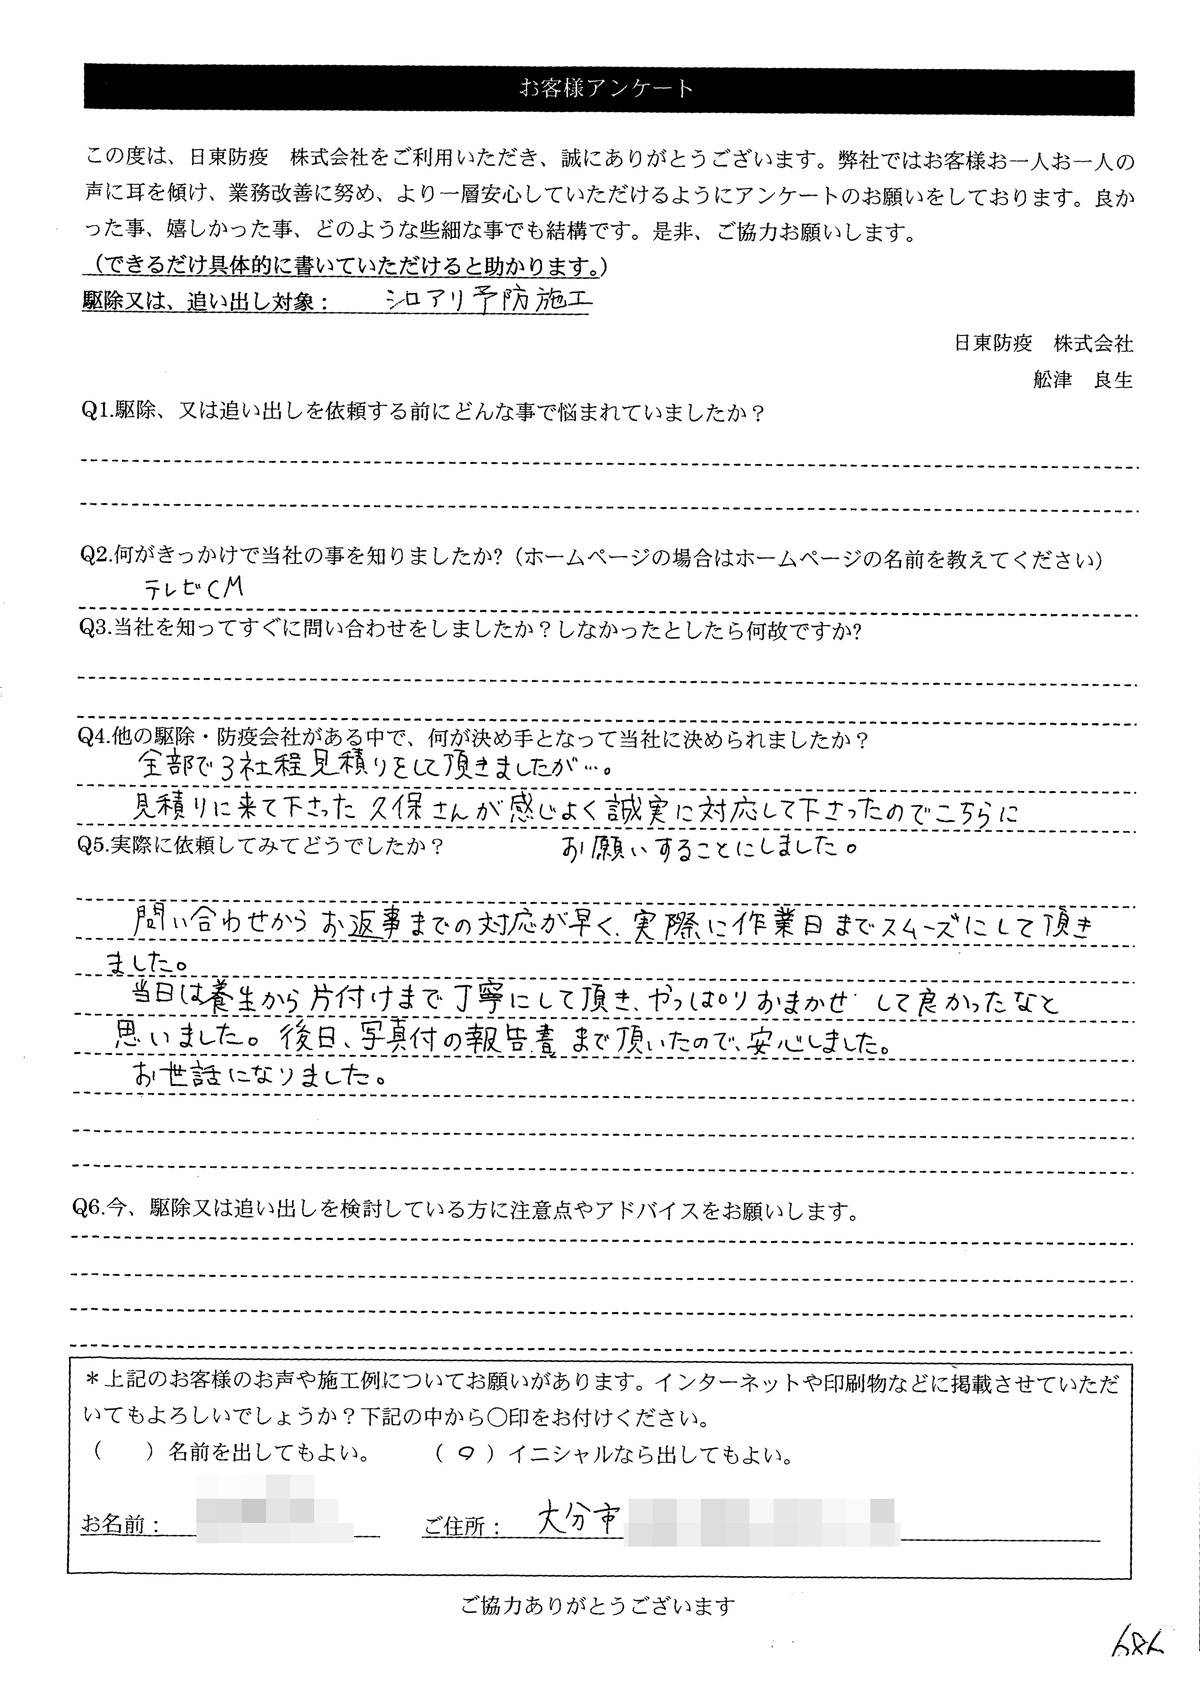 お客様アンケート
この度は、日東防疫　株式会社をご利用いただき、誠にありがとうございます。弊社ではお客様お一人お一人の
声に耳を傾け、業務改善に努め、より一層安心していただけるようにアンケートのお願いをしております。良か
った事、嬉しかった事、どのような些細な事でも結構です。是非、ご協力お願いします。
（できるだけ具体的に書いていただけると助かります。）
駆除又は、追い出し対象：　シロアリ予防施工
日東防疫　株式会社
舩津　良生
Q1.駆除、又は追い出しを依頼する前にどんな事で悩まれていましたか？
Q2.何がきっかけで当社の事を知りましたか?（ホームページの場合はホームページの名前を教えてください）
テレビCM
Q3.当社を知ってすぐに問い合わせをしましたか？しなかったとしたら何故ですか?
Q4.他の駆除・防疫会社がある中で、何が決め手となって当社に決められましたか？
全部で3社程見積りをして頂きましたが…。
見積りに来て下さった久保さんが感じよく誠実に対応して下さったのでこちらに
Q5.実際に依頼してみてどうでしたか？　お願いすることにしました。
問い合わせからお返事までの対応が早く、実際に作業日までスムーズにして頂き
ました。
当日は養生から片付けまで丁寧にして頂き、やっぱりおまかせして良かったなと
思いました。後日、写真付の報告書まで頂いたので、安心しました。
お世話になりました。
Q6.今、駆除又は追い出しを検討している方に注意点やアドバイスをお願いします。
＊上記のお客様のお声や施工例についてお願いがあります。インターネットや印刷物などに掲載させていただ
いてもよろしいでしょうか？下記の中から〇印をお付けください。
（　　）名前を出してもよい。　（ ○ ）イニシャルなら出してもよい。
お名前：　ご住所：　大分市
ご協力ありがとうございます